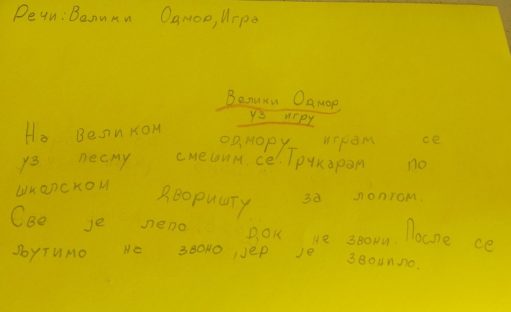 Речи: Велики Одмор, Игра
Велики Одмор
уз игру
На великом одмору играм се
уз песму смешим се. Трчкарам по
школском дворишту за лоптом.
Све је лепо док не звони. После се
љутимо на звоно, јер је звонило.